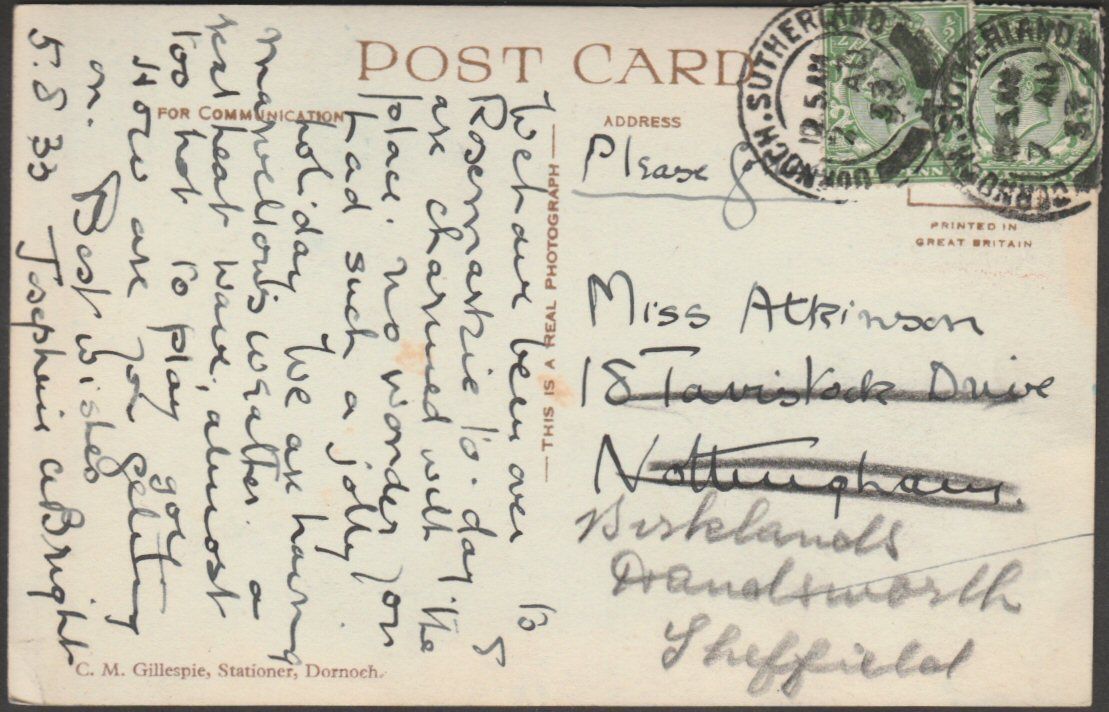 POST CARD
FOR COMMUNICATION
ADDRESS
We have been over to
Rosemarkie to-day &
are charmed with the
place. No wonder you
had such a jolly
holiday. We are having
marvellous weather. a
real heat wave, almost
too hot to play golf
How are you getting
on. Best wishes
5.8.33 Josephine A Bright
C. M. Gillespie, Stationer, Dornoch.
THIS IS A REAL PHOTOGRAPH
Please
DORNOCH. SUTHERLAND
12.5 AM
7 AU
33
DORNOCH. SUTHERLAND
12.5 AM
7 AU
33
PRINTED IN
GREAT BRITAIN
Miss Atkinson
18 Tavistock Drive
Nottingham.
Birklands
Handsworth
Sheffield